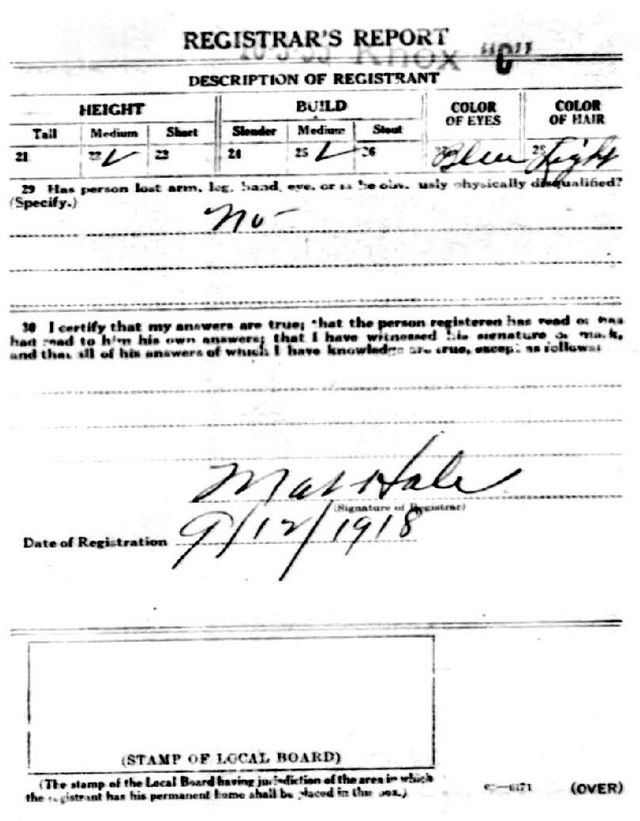 REGISTRAR'S REPORT
Knox "C"
DESCRIPTION OF REGISTRANT
HEIGHT BUILD COLOR OF EYES COLOR OF HAIR
Tall Medium Short Slender Medium Stout
21 22 ✓ 23 24 25 ✓ 26 27 Blue 28 Light
29 Has person lost arm, leg, hand, eye, or is he obv. usly physically disqualified?
(Specify.)
No -
30 I certify that my answers are true; that the person registered has read or has
had read to him his own answers; that I have witnessed his signature or mark,
and that all of his answers of which I have knowledge are true, except as follows:
Hale
(Signature of Registrar)
Date of Registration 9/12/1918
(STAMP OF LOCAL BOARD)
(The stamp of the Local Board having jurisdiction of the area in which
the registrant has his permanent home shall be placed in this box.)
(OVER)